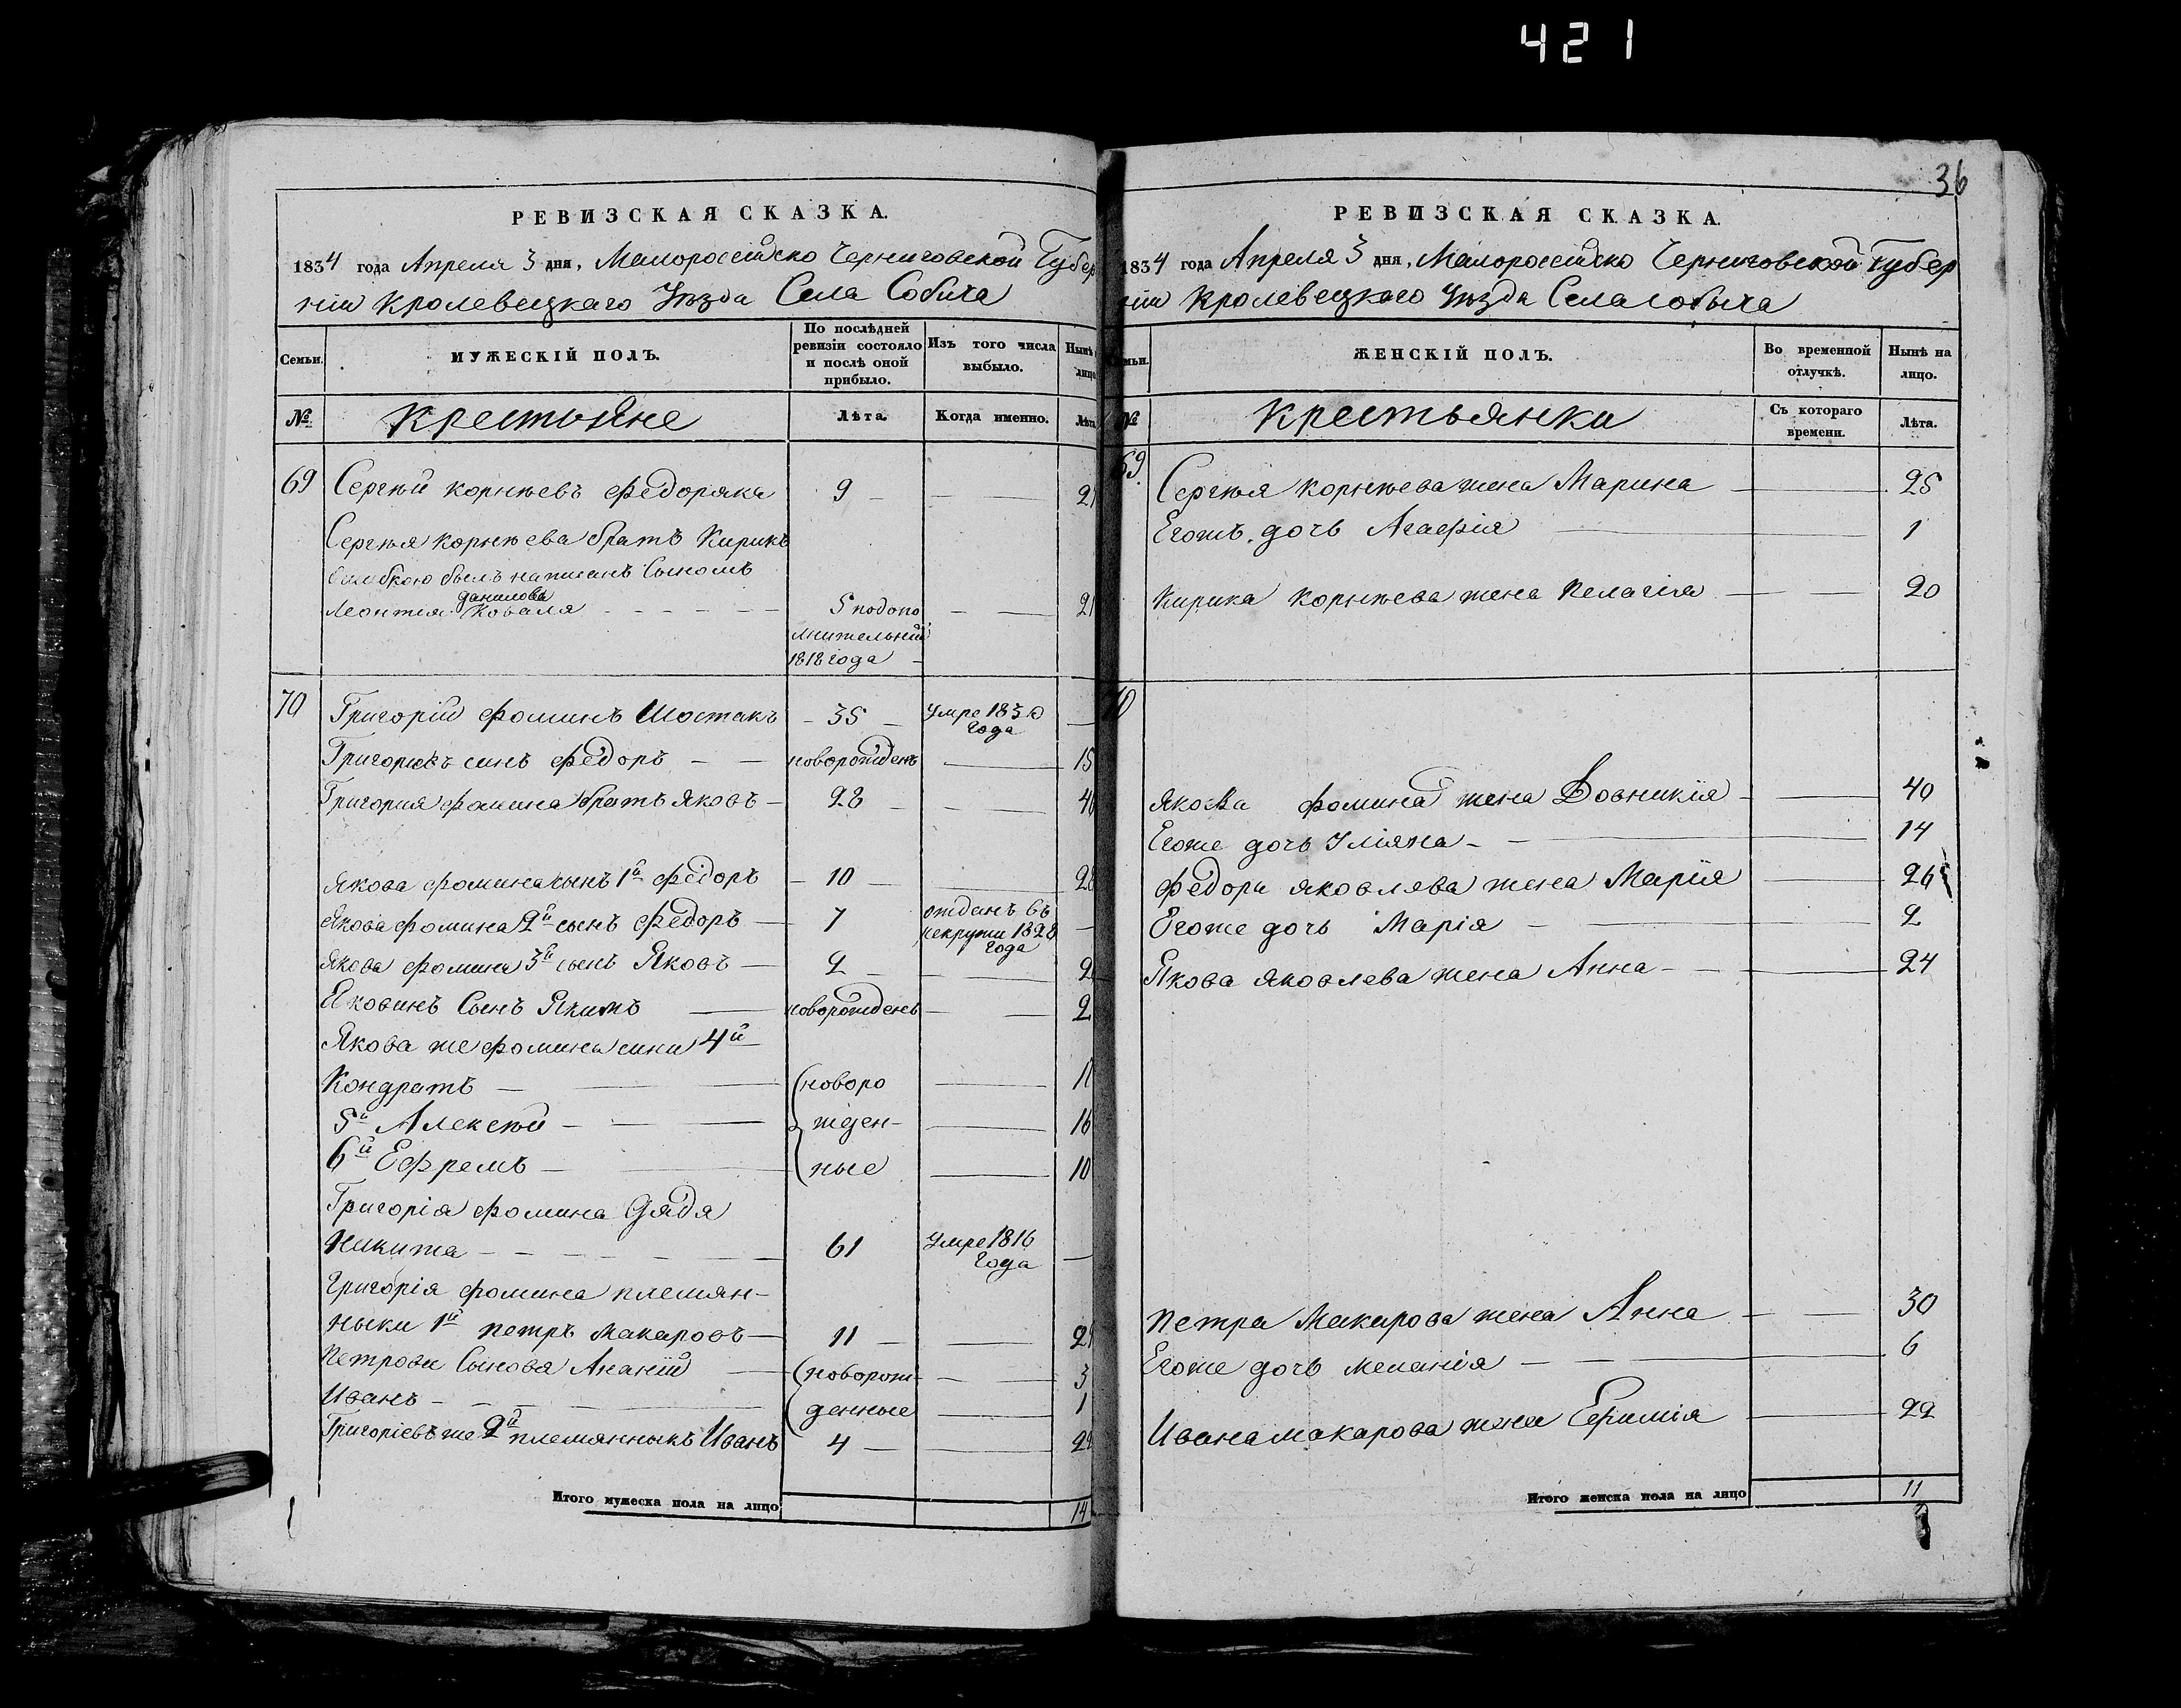 421
РЕВИЗСКАЯ СКАЗКА.
1834 года Апреля 3 дня, Малороссійско Черниговской Губер
ніи Кролевецкаго Уѣзда Села Собича
Семьи.
МУЖЕСКІЙ ПОЛЪ.
По послѣдней ревизіи состояло и послѣ оной прибыло.
Изъ того числа выбыло.
Нынѣ лицо
№
Крестьяне
Лѣта.
Когда именно.
Лѣта
69 Сергѣй Корнѣевъ Федоряка 9 — — 21
Сергѣя Корнѣева братъ Кирикъ
ошибкою былъ написанъ Сыномъ
данилова
Леонтія Коваля 5 подопо — — 21
лнительній
1818 года
70 Григорій Фоминъ Шостакъ 35 Умре 1830 года —
Григориевъ синъ Федоръ — — новорожденъ — 15
Григория Фомина братъ Яковъ 28 — — 46
Якова Фомина сынъ 1й Федоръ 10 — 28
Якова Фомина 2й сынъ Федоръ 7 отданъ въ рекруты 1828 года —
Якова Фомина 3й сынъ Яковъ — 2 — — 2
Яковинъ Сынъ Якимъ — новорожденъ — — 2
Якова же Фомины сини 4й
Кондратъ — новоро — 1
5й Алексѣй — жден- — 16
6й Ефремъ — ные — 10
Григорія Фомина Дядя
Никита — 61 Умре 1816 года —
Григорія Фомина племян-
ныки 1й Петръ Макаровъ — 11 — — 29
Петрови Сынова Ананій — новорож- — 3
Иванъ — денные — 1
Григоріевъ же 2й племянныкъ Иванъ 4 — — 22
Итого мужеска пола на лицо 14
36
РЕВИЗСКАЯ СКАЗКА.
1834 года Апреля 3 дня, Малороссійско Черниговской Губер
ніи Кролевецкаго Уѣзда Села Собыча
мьи.
ЖЕНСКІЙ ПОЛЪ.
Во временной отлучкѣ.
Нынѣ на лицо.
№
Крестьянки
Съ котораго времени.
Лѣта.
69. Сергѣя Корнѣева жена Марина — 25
Егожъ дочь Агафія — 1
Кирика Корнѣева жена Пелагія — — 20
70
Якова Фомина жена Довникія — 40
Егоже дочь Уліяна — 14
Федора Яковлева жена Марія — 26
Егоже дочь Марія — 2
Якова Яковлева жена Анна — 24
Петра Макарова жена Анна — 30
Егоже дочь Меланія — 6
Ивана Макарова жена Ефимія — 22
Итого женска пола на лицо 11